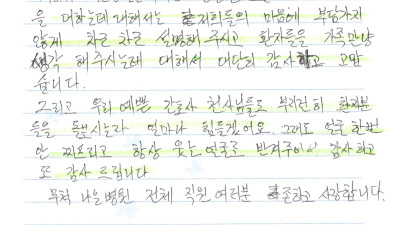 을 대하는데 대해서는 저희들의 마음에 부담가지
않게 차근 차근 설명해 주시고 환자들을 가족만양
생각 해주시는데 대해서 대단히 감사하고 고맙
습니다.
그리고 우리 예쁜 간호사 천사님들도 부지런히 환자분
들을 돌보시는라 얼마나 힘들겠어요. 그래도 얼굴 한번
안 찌푸리고 항상 웃는 얼굴로 반겨주어서 감사하고
또 감사 드립니다
목처 나은병원 전체 직원 여러분 존존하고 사랑합니다.